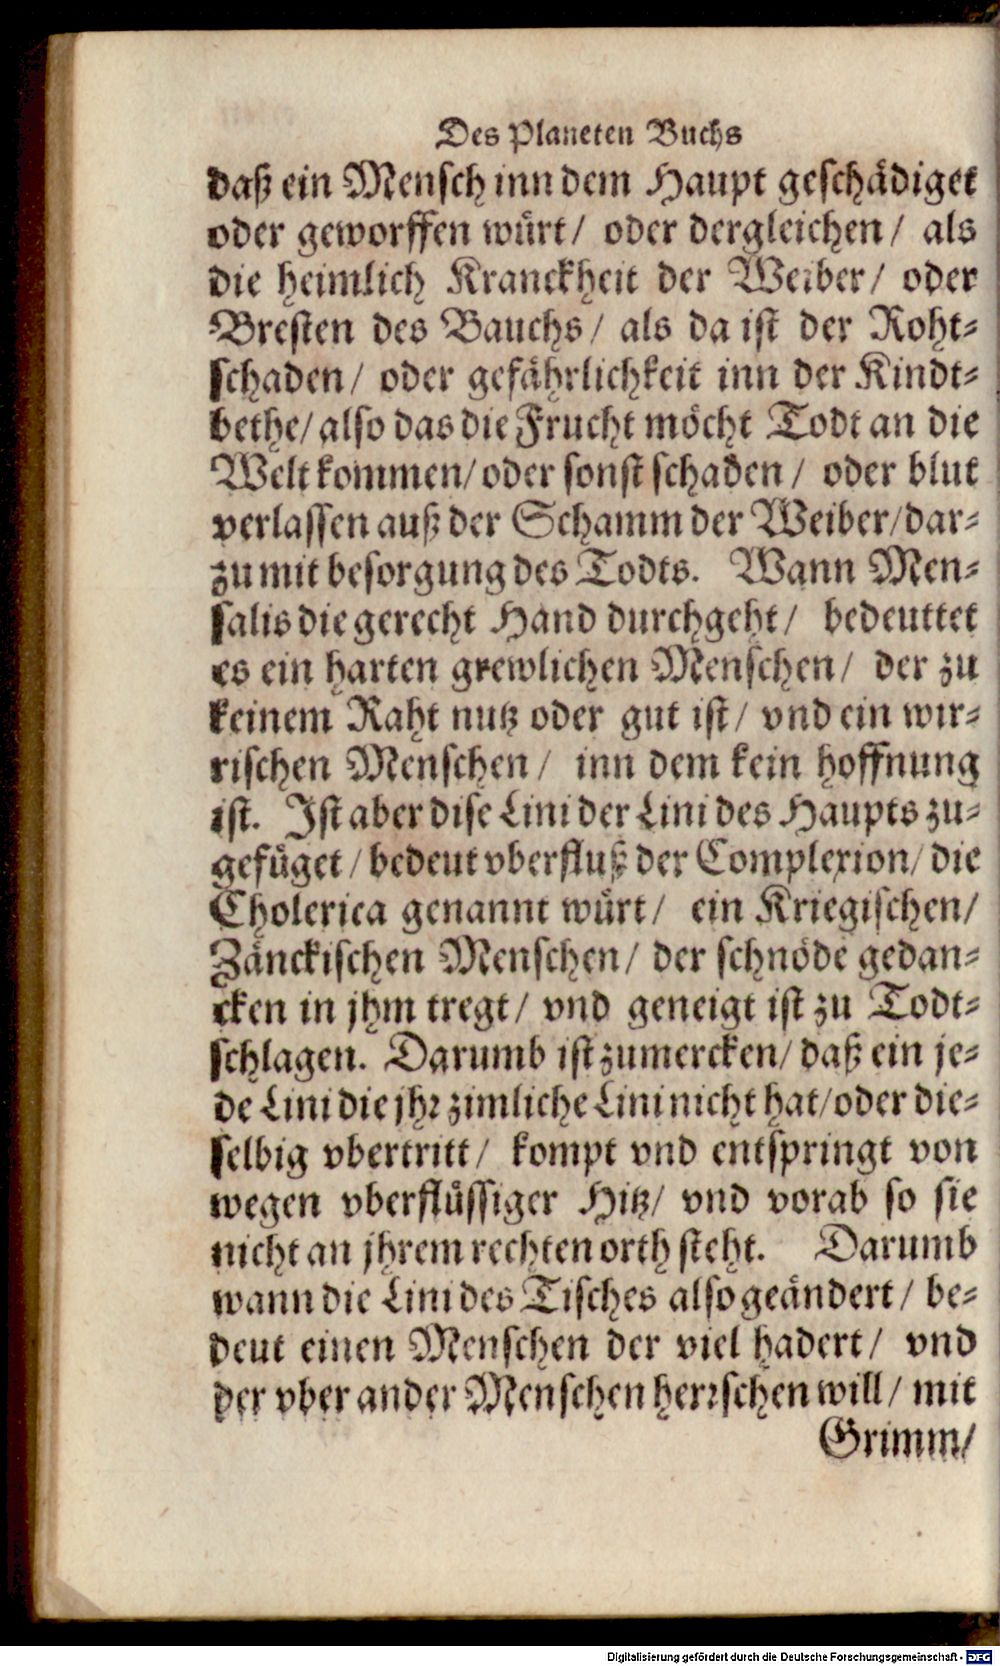 Des Planeten Buchs
daß ein Mensch inn dem Haupt geschädiget
oder geworffen würt/ oder dergleichen/ als
die heimlich Kranckheit der Weiber/ oder
Bresten des Bauchs/ als da ist der Roht-
schaden/ oder gefährlichkeit inn der Kindt-
bethe/ also das die Frucht möcht Todt an die
Welt kommen/ oder sonst schaden/ oder blut
verlassen auß der Schamm der Weiber/ dar-
zu mit besorgung des Todts. Wann Men-
salis die gerecht Hand durchgeht/ bedeuttet
es ein harten grewlichen Menschen/ der zu
keinem Raht nutz oder gut ist/ vnd ein wir-
rischen Menschen/ inn dem kein hoffnung
ist. Ist aber dise Lini der Lini des Haupts zu-
gefüget/ bedeut vberfluß der Complexion/ die
Cholerica genannt würt/ ein Kriegischen/
Zänckischen Menschen/ der schnöde gedan-
cken in jhm tregt/ vnd geneigt ist zu Todt-
schlagen. Darumb ist zumercken/ daß ein je-
de Lini die jhr zimliche Lini nicht hat/ oder die-
selbig vbertritt/ kompt vnd entspringt von
wegen vberflüssiger Hitz/ vnd vorab so sie
nicht an jhrem rechten orth steht. Darumb
wann die Lini des Tisches also geändert/ be-
deut einen Menschen der viel hadert/ vnd
der vber ander Menschen herrschen will/ mit
Grimm/
Digitalisierung gefördert durch die Deutsche Forschungsgemeinschaft - DFG